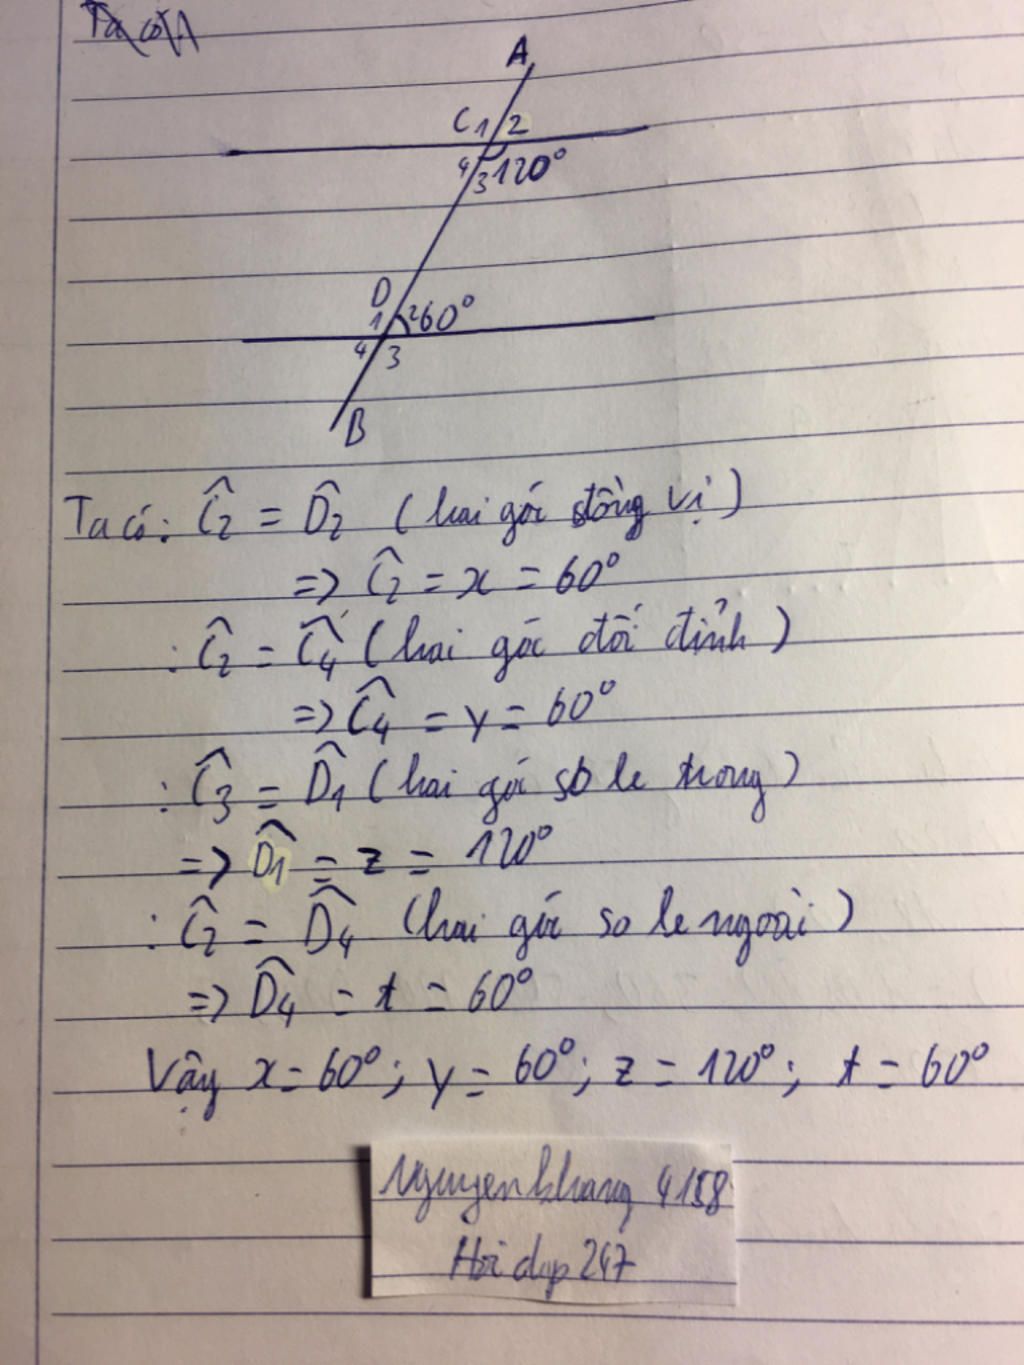 Ta có A
A
C 1 2
4 3 120°
D
1 2 60°
4 3
B
Ta có: Ĉ₂ = D̂₂ (hai góc đồng vị)
=> Ĉ₂ = x = 60°
: Ĉ₂ = Ĉ₄ (hai góc đối đỉnh)
=> Ĉ₄ = y = 60°
: Ĉ₃ = D̂₁ (hai góc so le trong)
=> D̂₁ = z = 120°
: Ĉ₂ = D̂₄ (hai góc so le ngoài)
=> D̂₄ = t = 60°
Vậy x = 60°; y = 60°; z = 120°; t = 60°
Nguyenkhang 4158
Hoi dap 247